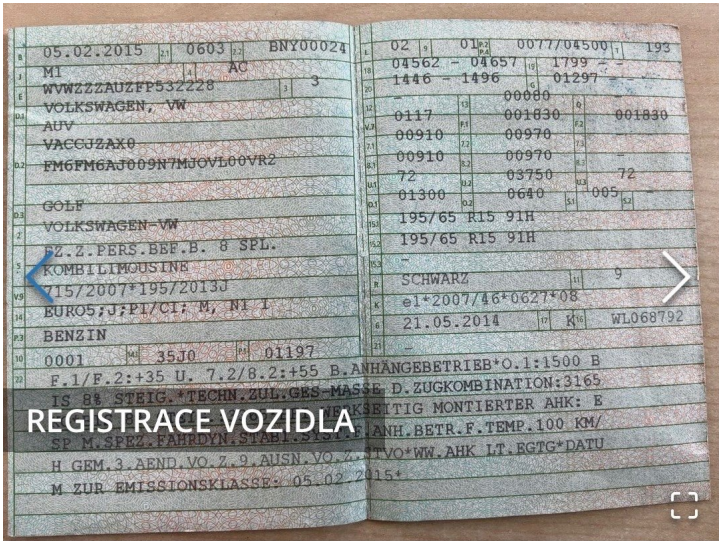 B 05.02.2015 2.1 0603 2.2 BNY00024
J M1 4 AC
E WVWZZZAUZFP532228 3 3
D.1 VOLKSWAGEN, VW
AUV
VACCJZAX0
D.2 FM6FM6AJ009N7MJOVL00VR2
D.3 GOLF
2 VOLKSWAGEN-VW
5 FZ.Z.PERS.BEF.B. 8 SPL.
KOMBILIMOUSINE
V.9 715/2007*195/2013J
14 EURO5;J;PI/CI; M, N1 I
P.3 BENZIN
10 0001 14.1 35J0 P.1 01197
L 02 9 01 P.2 P.4 0077/04500 T 193
18 04562 - 04657 19 1799 - -
20 1446 - 1496 G 01297 - -
12 - 13 00080 Q -
V.7 0117 F.1 001830 F.2 001830
7.1 00910 7.2 00970 7.3 -
8.1 00910 8.2 00970 8.3 -
U.1 72 U.2 03750 U.3 72
O.1 01300 O.2 0640 S.1 005 S.2 -
15.1 195/65 R15 91H
15.2 195/65 R15 91H
15.3 -
R SCHWARZ 11 9
K e1*2007/46*0627*08
6 21.05.2014 17 K 16 WL068792
21 -
22 F.1/F.2:+35 U. 7.2/8.2:+55 B.ANHÄNGEBETRIEB*O.1:1500 B
IS 8% STEIG.*TECHN.ZUL.GES-MASSE D.ZUGKOMBINATION:3165
WERKSEITIG MONTIERTER AHK: E
SP M.SPEZ.FAHRDYN.STABI.SYST.F.ANH.BETR.F.TEMP.100 KM/
H GEM.3.AEND.VO.Z.9.AUSN.VO.Z.STVO*WW.AHK LT.EGTG*DATU
M ZUR EMISSIONSKLASSE: 05.02.2015*
REGISTRACE VOZIDLA